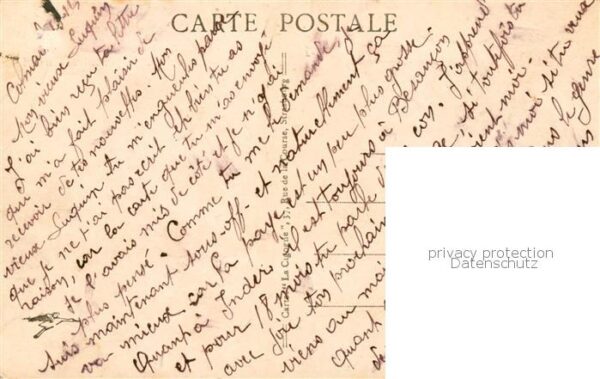 CARTE POSTALE
Colmar
Mon vieux Luquin
J'ai bien reçu ta lettre
qui m'a fait plaisir de
recevoir de tes nouvelles. Mon
vieux Luquin tu m'engueules parce
que je ne t'ai pas écrit eh bien tu as
raison, car la carte que tu m'as envoyé
je l'avais mis de côté et je n'y ai
plus pensé. Comme tu me le demande je
suis maintenant sous-off. et naturellement ça
va mieux car la paye est un peu plus grosse.
Quant à il est toujours à Besançon
et pour 18 mois. tu parle d'un con. J'apprend
avec joie ton prochain
viens au
Quant
si toutefois tu
-moi.
-moi si tu veux
le genre
Cartes "La Cigogne", 37, Rue de la Course, Strasbourg
privacy protection
Datenschutz